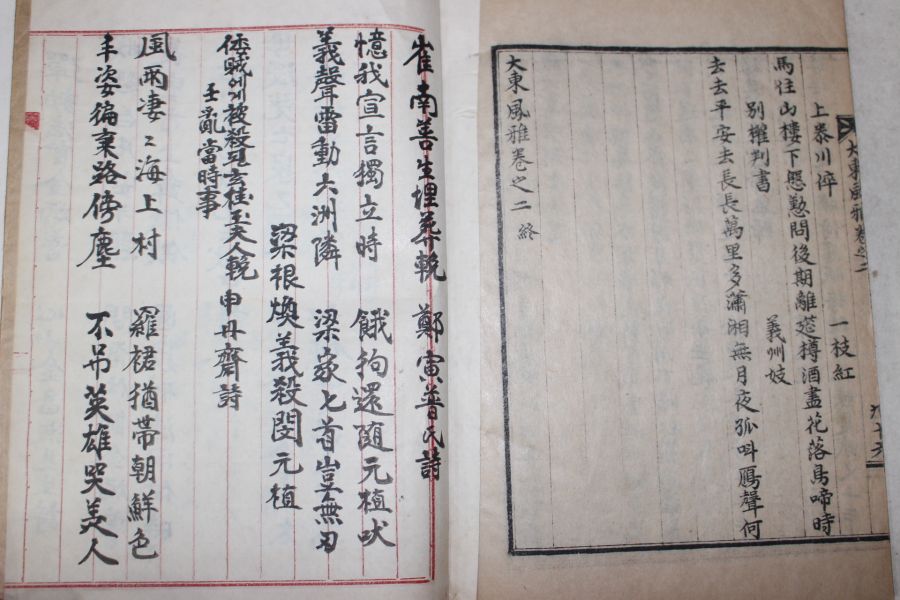 大東風雅卷之二
上泰川倅 一枝紅
馬住山樓下慇懃問後期離筵樽酒盡花落鳥啼時
別權判書 義州妓
去去平安去長長萬里多瀟湘無月夜孤叫鴈聲何
大東風雅卷之二 終
崔南善生埋葬輓 鄭寅普氏詩
憶我宣言獨立時 餓狗還隨元植吠
義聲雷動六洲隣 梁家匕首豈無刃
梁根煥義殺閔元植
倭賊에게被殺 玄桂玉夫人輓 申丹齋詩
壬亂當時事
風雨凄〻海上村 羅裙猶帶朝鮮色
丰姿徧棄路傍塵 不弔英雄哭美人